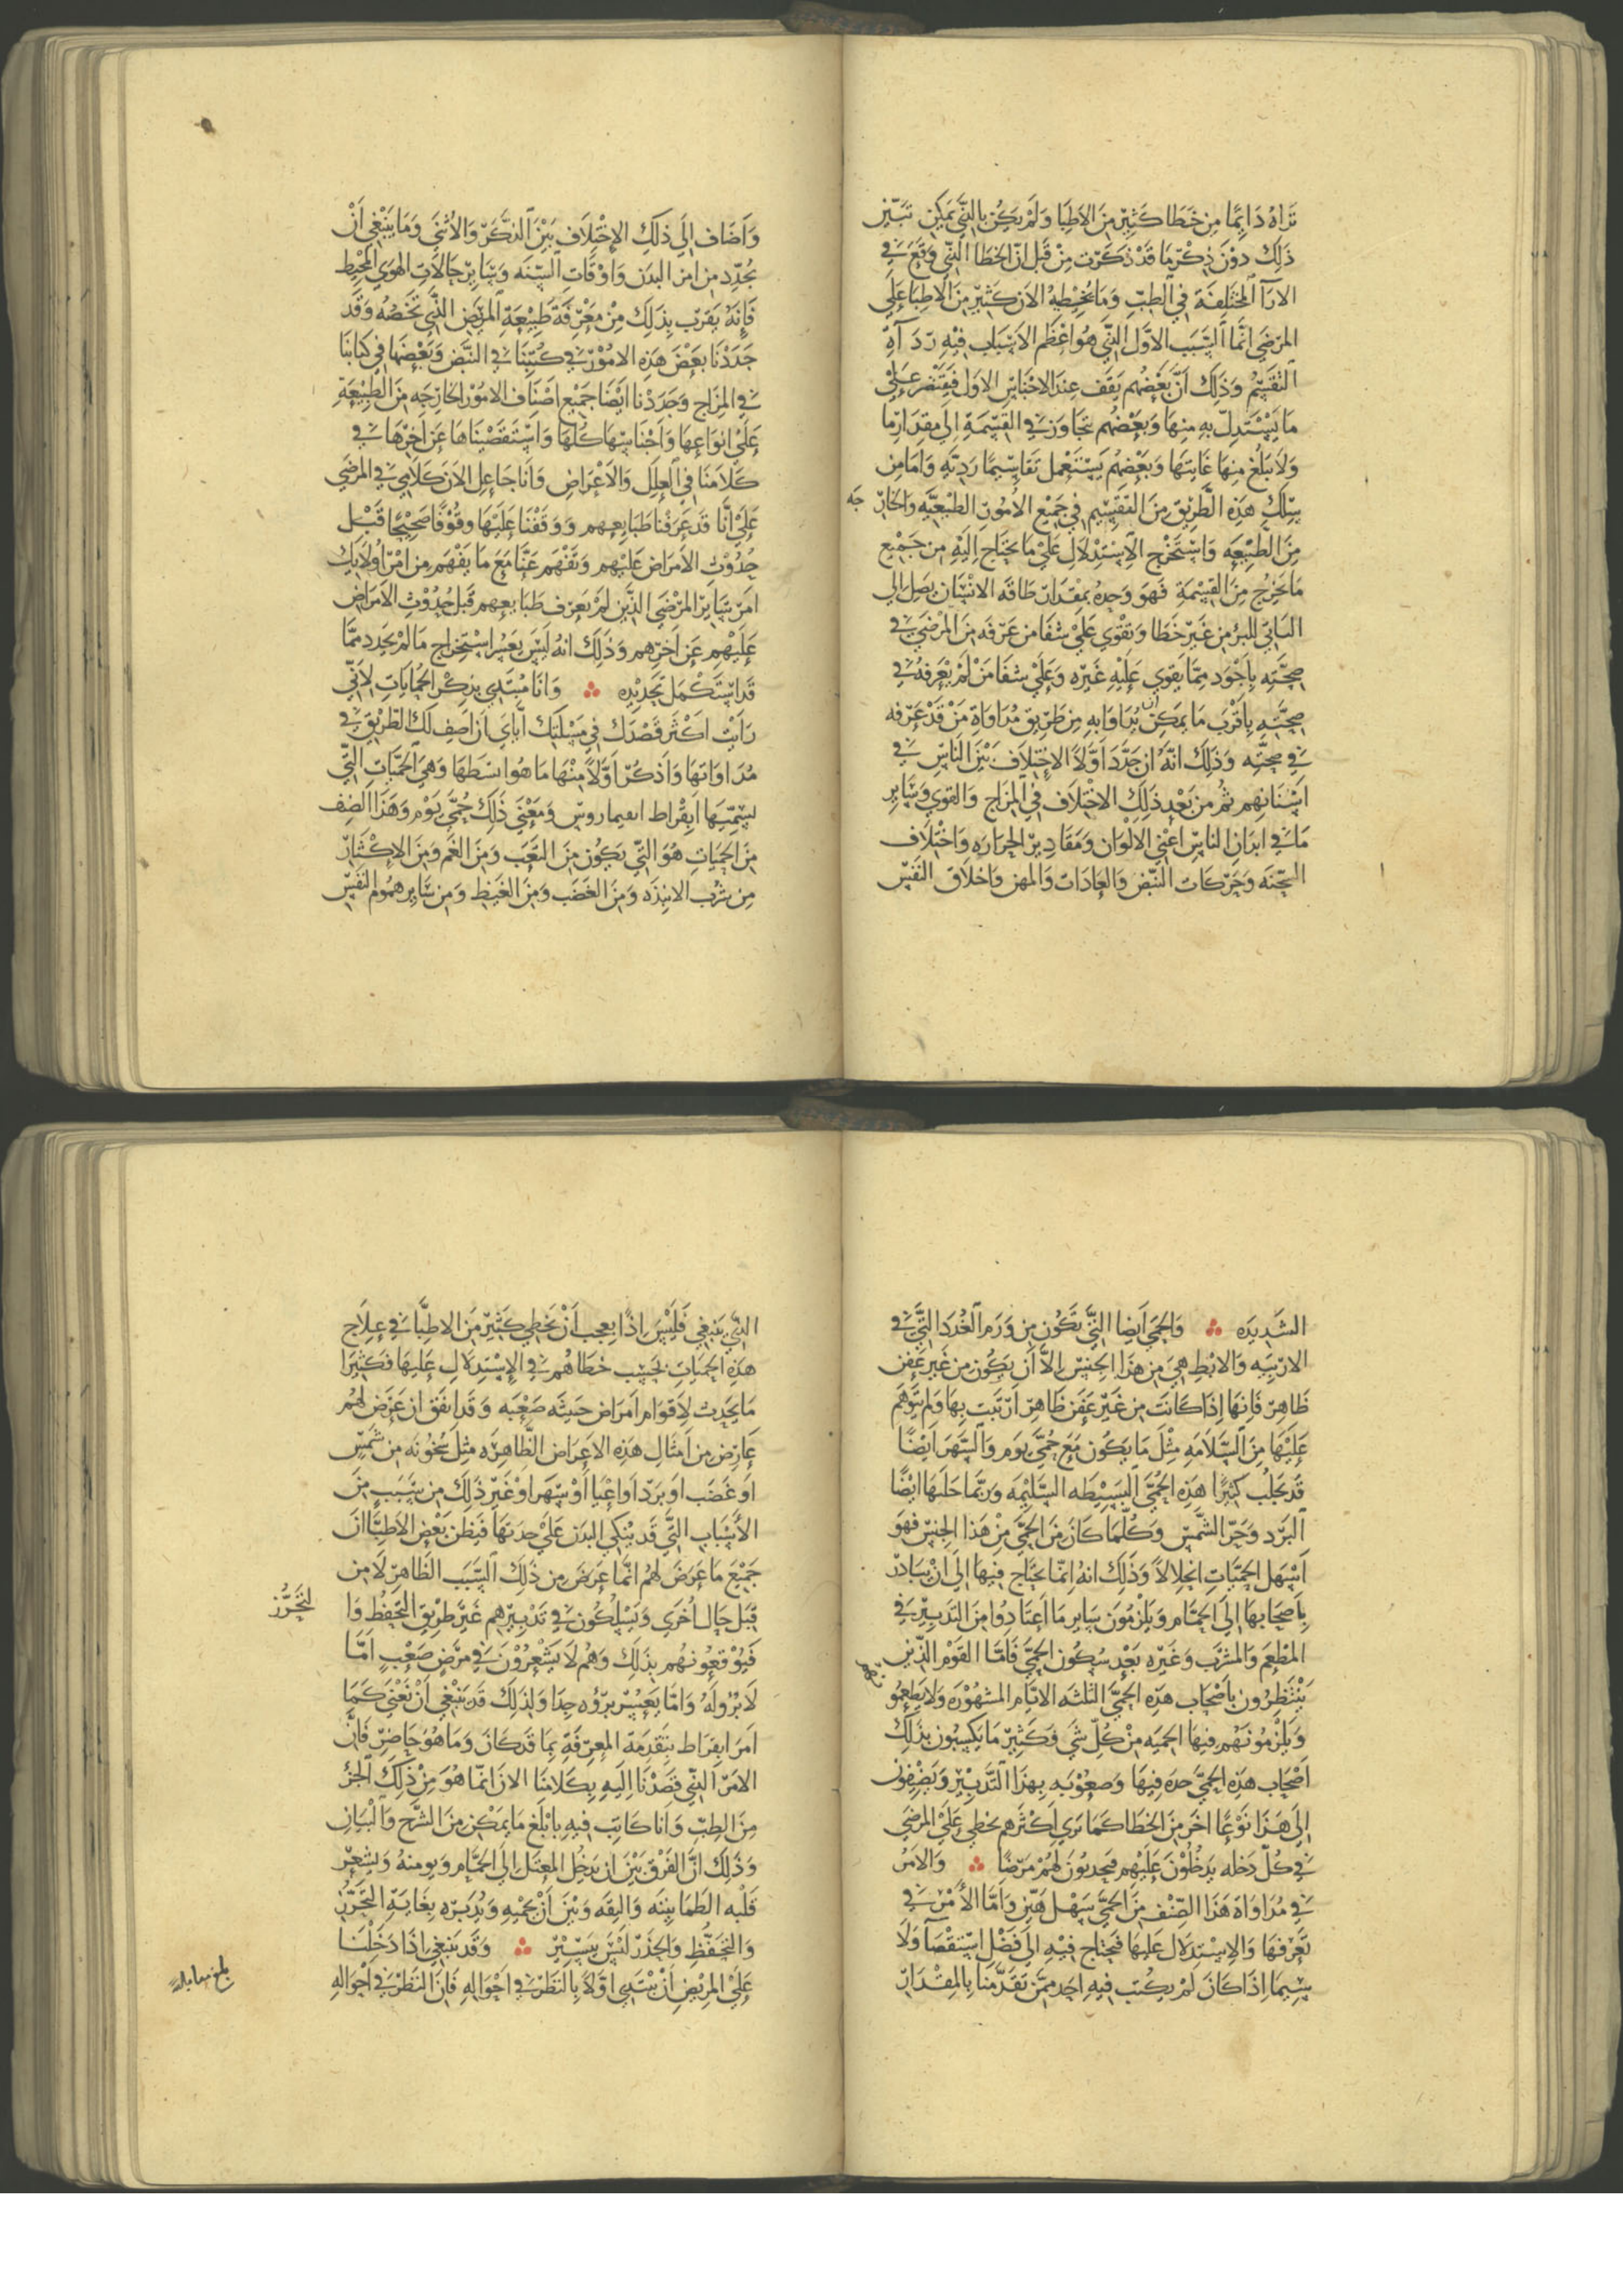 تَرَاهُ دَائِمًا مِن خَطَا كَثِيْرٍ مِنَ الاَطِبَا وَلَمْ يَكُنْ بِالذَّي يَمكِن تَبَيّن
ذَلِكَ دوْنَ ذِكْرِ مَا قَدْ ذَكَرْت مِنْ قَبَل انّ الخَطَا الذَّي وَقَعَ في
الارَآ المختَلِفَة في الطِبّ وَمَا يُخطِيهُ الاَن كَثِيْر مِنَ الاطِبَا عَلَي
المرْضَي انَّما السَّبَب الاوَّل الذَّي هُوَ اعْظَم الاسْبَاب فِيْهِ رَدَآة
التقْسِيْم وَذَلِكَ اَنَّ بَعْضَهُم يَقِف عِندَ الاجْنَاسِ الاوَل فَيَقْتَصِر عَلَي
مَا يَسْتَدِلّ بهِ مِنهَا وَبَعْضُهُم يَتَجَاوز في القِسْمَةِ اِلَي مِقدَار مَا
وَلَا يَبلغ مِنهَا غَايَتهَا وَبَعْضهُم يَسْتَعْمِل تَقَاسِيْمًا رَدِيّه وَامَا مِن
سِلَكَ هَذِهِ الطَّرِيْق مِنَ التقسِيْم في جَمِيْع الامُوْرِ الطَبِيْعيَّه وَالخَارِ جَه
مِنَ الطَبِيْعَه وَاسْتَخْرَج الاِسْتِدْلاَل عَلَيْ مَا يَحتَاج اِليْهِ مِن جَمِيْعِ
مَا يَخرجُ مِنَ القِسْمَةِ فَهوَ وَحِدهُ بِمقْدَار طَاقَه الانْسَان يَصِل الي
البَاقي للبرْو مِن غَيْرِ خَطَا وَيَقْوَي عَلَيْ شفَا مَن عَرَفَه مِنَ المرْضَي في
صِحَّتِهِ بِاَجْوَد ممَّا يقوي عَلَيْهِ غَيْرَه وَعَلَيْ شفَا مَنْ لَمْ يَعْرِفهُ في
صِحَّتهِ بِاقْرَب مَا يمَكِنُ ان يُدَاوَا بهِ مِن طَرِيْق مُدَاوَاة مَنْ قَدْ عَرَفه
في صِحَّتِه وَذَلِكَ انَّهُ ان جَدَّدَ اَوَّلاً الاِخْتِلاَف بَيْنَ النَاسِ في
اسْنَانِهِم ثُم مِن بَعْدِ ذَلِكَ الاخْتِلاَف في المِزَاج وَالقوَي وَسَايِرِ
مَا في ابدَان الناسِ اعْنِي الالْوَان وَمَقَادِيْر الحَرَارَه وَاخْتِلاَف
السَّحْنَه وَحَرَكَات النَّبْض وَالعَادَات وَالمِهَن وَاخلاَق النَفَسْ
وَاَضَاف اِلي ذَلِكَ الاِخْتِلاَف بَيْنَ الذَّكَرِ وَالاُنْثَي وَمَا يَنْبَغِي اَنْ
يُحدّد مِن امر البدَن وَاَوْقَاتِ السَّنَه وَسَايِر حَالاَتِ الهوَي المحِيْط
فَاِنَهُ يَقرَب بذَلِكَ مِنْ مَعْرِفَة طَبِيْعَةِ المَرِيْض التَّي تَخصُّه وَقَد
حَدَدْنَا بَعْضَ هَذِهِ الامُوْر في كُتبنَا في النَّبْض وَبَعْضهَا في كِتَابَنَا
في المِزَاج وَحَدَدْنا ايضًا جَمِيْع اَصْنَاف الامُوْر الخَارِجَه مِنَ الطَبِيْعَةِ
عَلَيْ انوَاعِهَا وَاَجْنَاسِهَا كُلّهَا وَاسْتَقصَيْنَاهَا عَن اخرِهَا في
كَلاَمنَا في العِلَل وَالاَعْرَاض وَانَا جَاعِل الانَ كَلاَمِي في المرْضَي
عَلَيْ اَنَّا قَد عَرَفْنا طَبَايِعِهِم وَوَقَفْنَا عَلَيْهَا وقُوْفًا صَحِيْحًا قَبْل
حُدُوْثِ الاَمرَاض عَلَيْهِم وَتَفْهَم عَنَّا مَعَ مَا يَفهَم مِن امْر اُولاَيِكَ
امرَ سَايِر المَرْضَي الذَّين لَمْ يعَرف طَبَايعِهم قَبل حُدُوْثِ الاَمرَاض
عَلَيْهِم عَن آخِرِهم وَذَلِكَ انهُ لَيْسَ يَعَسُر اسْتِخرَاج مَا لَمْ يحدد ممَّا
قَد اسْتَكْمَل تَحدِيْده ؞ وَانَا مُبْتَدِي بِذِكْرِ الحُمَّايَات لاَنّي
رَاَيْت اكْثَر قَصْدك في مَسْلَتِكَ اِيّايَ اَن اَصف لَكَ الطَرِيْق في
مُدَاوَاتِهَا وَاَذكُر اَوَّلاً مِنْهَا مَا هُوَ ابسَطهَا وَهيَ الحُمَّيَاتِ التَّي
يسَمّيَهَا ابقْرَاط افيماروس وَمَعْنَي ذَلِكَ حُمَّي يَوْم وَهَذَا الصِنف
مِنَ الحُمَيَاتِ هُوَ التَّي يَكُون مِنَ التَعَب وَمِنَ الغَم وَمِنَ الاِكْثَار
مِن شرْبِ الانبِذَه وَمِنَ الغَضَب وَمِنَ الغَيظ وَمِن سَايِر همُوم النَفَسْ
الشَديدَه ؞ وَالحُمَي اَيضًا التَّي تَكُون مِن وَرَم الغُدَد التَّي في
الارْبيَه وَالابْطِ هِيَ مِن هَذَا الجِنْس اِلاَّ اَن يَكُون مِن غَيْرِ عَفَن
ظَاهِر فَانِهَا اِذَا كَانَت مِن غَيْرِ عَفَن ظَاهِر
عَلَيْهَا مِنَ السَّلاَمَهِ مِثْلَ مَا يَكُون مَعَ حُمَّي يَوم وَالسَّهَر اَيْضًا
قَد يَجْلُب كَثِيْرًا هَذِهِ الحُمَّي البَسِيْطَه السَّلِيْمَه وَرُبَّما جَلَبَهَا ايْضًا
البَرد وَحَرّ الشَّمْس وَكُلَّمَا كَانَ مِنَ الحُمَّي مِنْ هَذَا الجِنْس فهوَ
اَسْهَل الحُمَّيَاتِ انحِلاَلاً وَذَلِكَ انهُ اِنَّمَا يَحتَاج فِيهَا اِلَي اَنْ يبَادرْ
بِاَصْحَابِهَا اِلَي الحَمَّام وَيَلْزمُوْن سَايِر مَا اَعتَادوُا مِنَ التَدبِيْر في
المطْعَم وَالمشْرَب وَغَيْرِه بَعْد سُكُون الحُمَّي فَامَّا القَوْم الذَّين
يَنْتَظِرُون بِاَصْحَاب هَذِه الحُمَّي الثَلثَه الايَّام المشهُوْرَه وَلاَ يَطعِمُو نهم
وَيَلْزمُوْنَهُم فِيهَا الحِميَه مِنْ كُلّ شَيْ فَكَثِيْر مَا يَكسِبُون بذَلِكَ
اَصْحَاب هَذِه الحُمَّي حِدَه فِيهَا وَصعُوْبَه بِهَذَا التَّدبِيْر وَيضِيفون
اِلَي هَذَا نَوْعًا اخَر مِنَ الخَطَا كَمَا تَرَي اَكْثَرهم يخطي عَلَيْ المرْضَي
في كُلّ دَخله يَدخُلُوْنَ عَلَيْهِم فيَجدبُوْنَ لهُمْ مَرَضًا ؞ وَالامَرُ
في مُدَاوَاة هَذَا الصِّنْف مِنَ الحُمَّي سَهْل هَيّن وَاَمَّا الاَمْر في
تَعَرفهَا وَالاِسْتِدْلاَل عَلَيهَا فَيَحْتَاج فِيْهِ الَي فَضْلِ اسْتقْصَآ وَلَا
سِيَما اِذَا كَانَ لَمْ يكتب فِيهِ اَحَد ممَّن تَقَدَّمنَا بِالمِقْدَار
الذَّي يَنبَغِي فَلَيْسَ اِذًا بِعجَب اَنْ يُخطِي كَثِيْر مِنَ الاطِبَّا في عِلاَج
هَذِهِ الحُمَيَاتِ بحَسَب خطَاهُم في الاِسْتِدلاَل عَلَيهَا فَكَثِيْرا
مَا يَحدِث لاَقوَام اَمرَاض خَبيثَه صَعْبَه وَقَد اتفق ان عَرَضَ لهُم
عَارِض مِن اَمثَال هَذِهِ الاعَرَاض الظَاهِرَه مِثل سُخُوْنَه مِن شَمْس
اَو غَضَب اَو بَرَد اَو اِعْيَا اَوْ سَهَر اوْ غَيْر ذَلِكَ مِن سَبَب مِنَ
الاَسْبَاب التَّي قَد يُنكي البدَن عَلَيْ حِدتهَا فَيظن بَعْض الاَطِبَّا ان
جَمِيْعَ مَا عَرَضَ لهُم انَّمَا عَرَضَ مِن ذَلِكَ السَّبَب الظَاهِر لاَ من
قِبَل حَال اُخرَي وَيَسْلِكُون في تَدْبِيْرِهم غَيْر طَرِيق التَحَفُّظ وَا لتَحَرُّز
فَيُوْقِعُونهُم بذَلِكَ وَهُم لاَ يَشْعِرُوْنَ في مَرَض صَعْب اَمَّا
لاَ بُرْو لَهُ وَامَّا بِعَسِيْر بروه جِدَا وَلِذَلِكَ قَد يَنْبَغِي اَنْ نُعْنَي كَمَا
امرَ ابقِراط بِتَقدِمَة المعرِفَة بِمَا قَد كَانَ وَمَا هُوَ حَاضِر فَانَّ
الامَر الذَّي قصَدْنَا اِلَيهِ بِكَلاَمِنَا الانَ انَّمَا هُوَ مِنْ ذَلِكَ الجُزْ
مِنَ الطِبّ وَانا كَاتِب فِيهِ بِابْلَغ مَا يمَكْن مِنَ الشَّرْح وَالْبَيَان
وَذَلِكَ انَّ الفَرْق بَيْنَ ان يدخُل المعْتَل اِلَي الحَمَّام وَيومنهُ وَيشعِر
قَلْبه الطَمَانِيْنَه وَالثِقَه وَبَيْنَ اَنْ يَحمِيْهِ وَيُدَبّرَه بِغَايَةِ التَحَرُّز
وَالتَحَفُّظِ وَالحَذَر لَيْسَ بِيَسِيْر ؞ وَقَد يَنبَغِي اِذَا دَخَلْنَا
عَلَيْ المَرِيْضِ اَنْ نبْتَدِي اوَّلاً بِالنَظَر في اَحْوَالِهِ فَانَ النَظَر في اَحْوَالِهِ
بلغ مقابلة